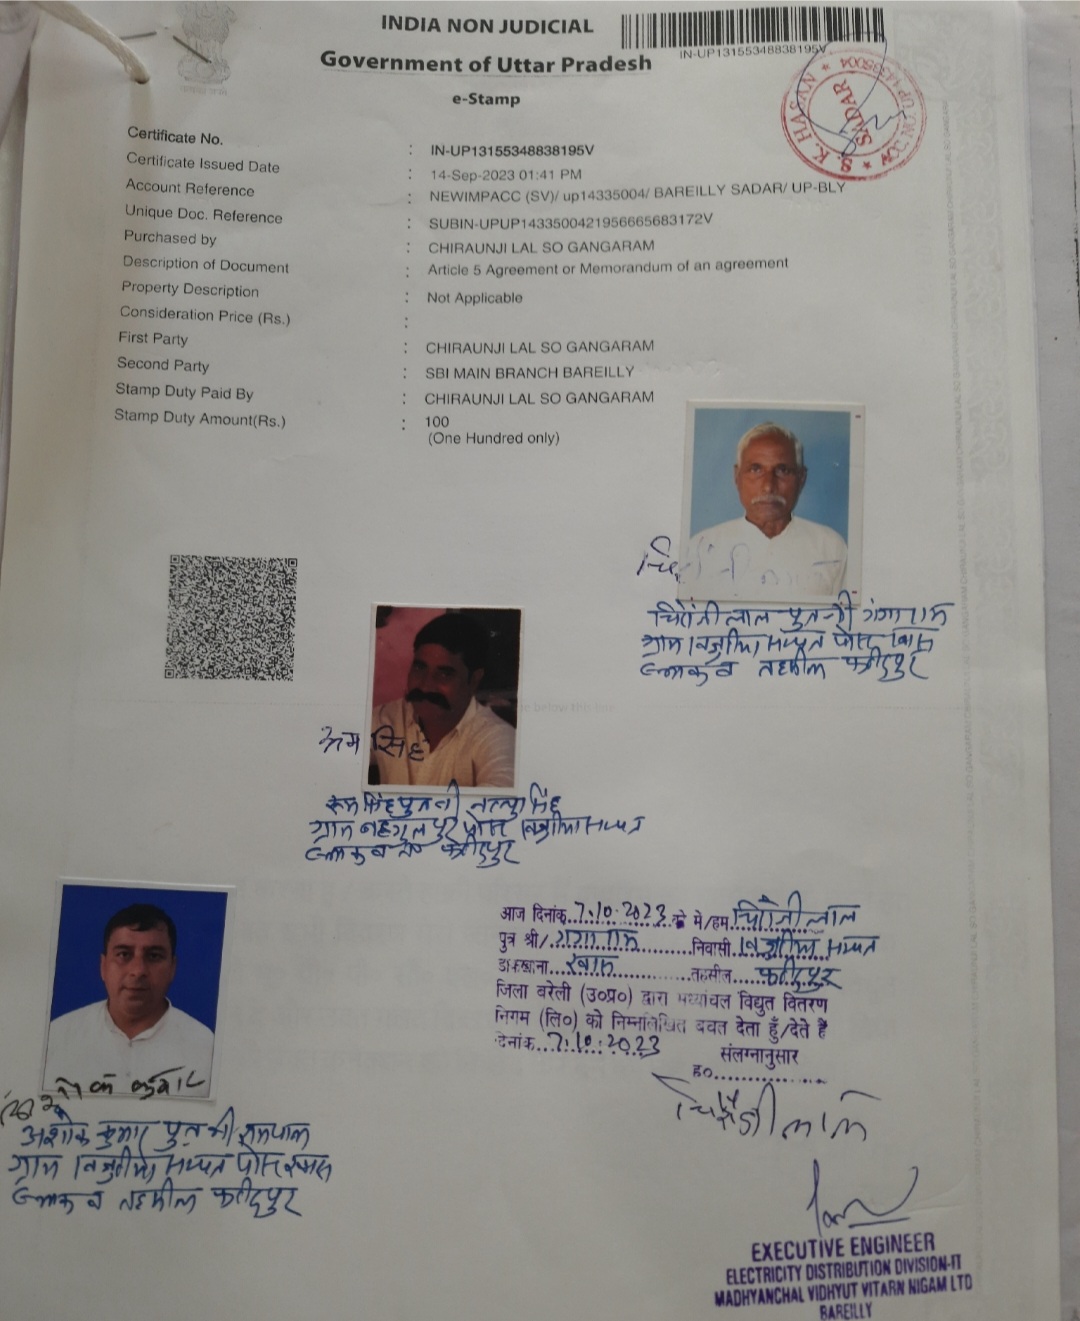 INDIA NON JUDICIAL
IN-UP13155348838195V
Government of Uttar Pradesh
e-Stamp
S. K. HASAN
SADAR
Certificate No. : IN-UP13155348838195V
Certificate Issued Date : 14-Sep-2023 01:41 PM
Account Reference : NEWIMPACC (SV)/ up14335004/ BAREILLY SADAR/ UP-BLY
Unique Doc. Reference : SUBIN-UPUP1433500421956665683172V
Purchased by : CHIRAUNJI LAL SO GANGARAM
Description of Document : Article 5 Agreement or Memorandum of an agreement
Property Description : Not Applicable
Consideration Price (Rs.) :
First Party : CHIRAUNJI LAL SO GANGARAM
Second Party : SBI MAIN BRANCH BAREILLY
Stamp Duty Paid By : CHIRAUNJI LAL SO GANGARAM
Stamp Duty Amount(Rs.) : 100
(One Hundred only)
चिरौंजी लाल पुत्र श्री गंगाराम
ग्राम पोस्ट खास
ब्लाक व तहसील फरीदपुर
सिंह
सिंह पुत्र श्री सिंह
ग्राम पोस्ट
ब्लाक व फरीदपुर
आज दिनांक 7.10.2023 को मे/हम चिरौंजी लाल
पुत्र श्री/ गंगा राम निवासी
डाकखाना खास तहसील फरीदपुर
जिला बरेली (उ०प्र०) द्वारा मध्यांचल विद्युत वितरण
निगम (लि०) को निम्नलिखित वचन देता हूँ/देते है
दिनांक 7.10.2023
संलग्नानुसार
ह०
चिरौंजी लाल
अशोक कुमार
अशोक कुमार पुत्र श्री रामपाल
ग्राम पोस्ट खास
ब्लाक व तहसील फरीदपुर
EXECUTIVE ENGINEER
ELECTRICITY DISTRIBUTION DIVISION-II
MADHYANCHAL VIDHYUT VITARN NIGAM LTD
BAREILLY